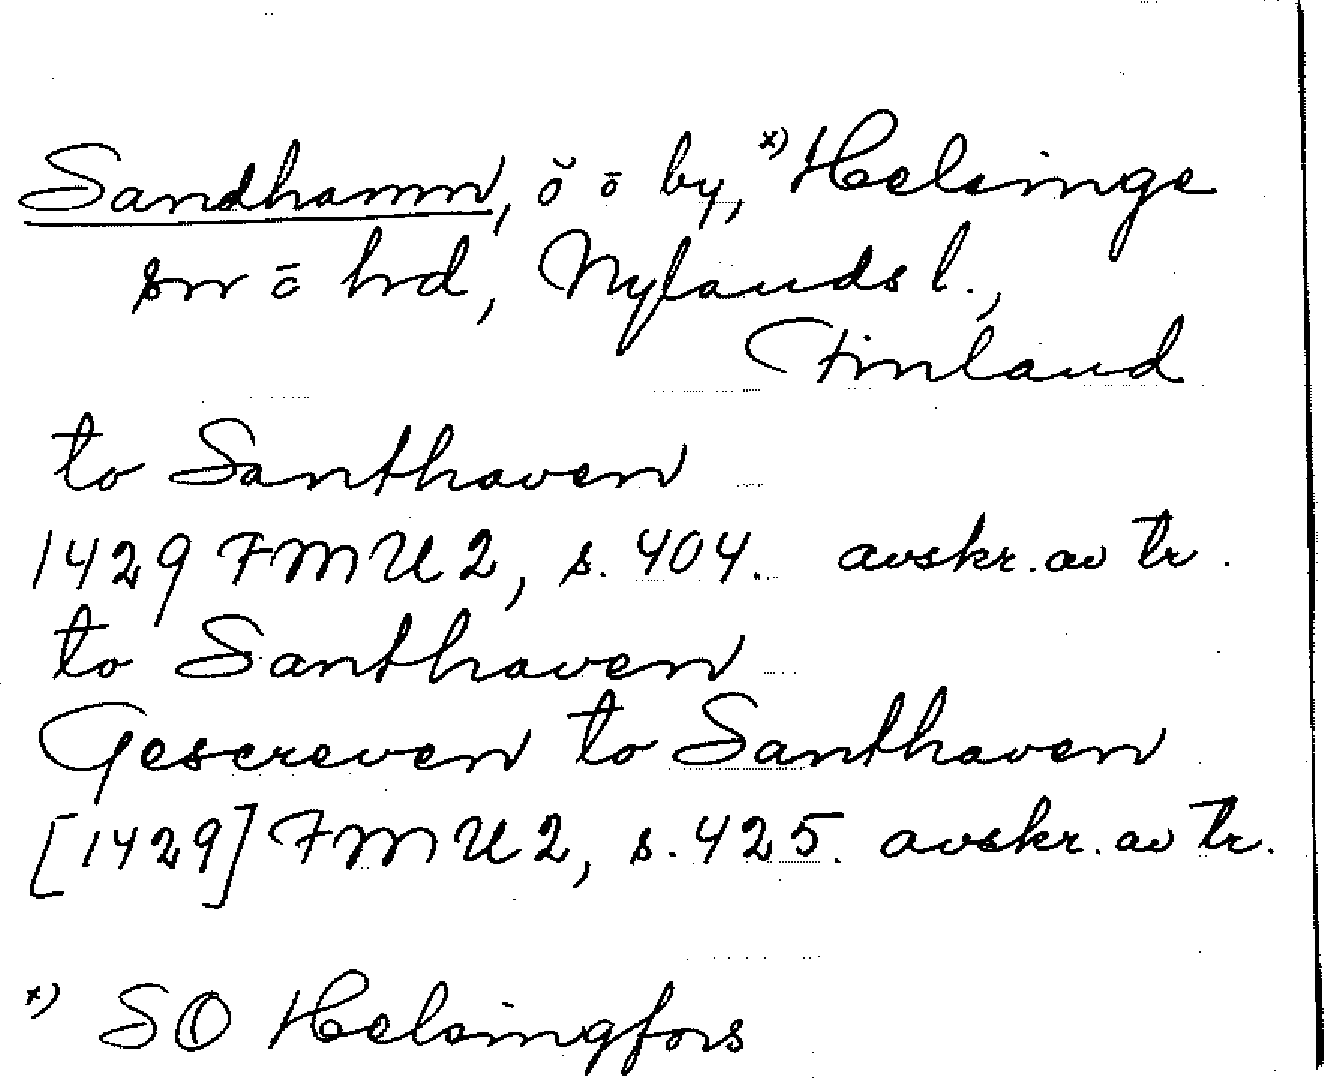 Sandhamn, ö o by, x) Helsinge
sn o hd, Nylands l.,
Finland
to Santhaven
1429 FMU 2, s. 404. avskr. av tr.
to Santhaven
Gescreven to Santhaven
[1429] FMU 2, s. 425. avskr. av tr.
x) SO Helsingfors